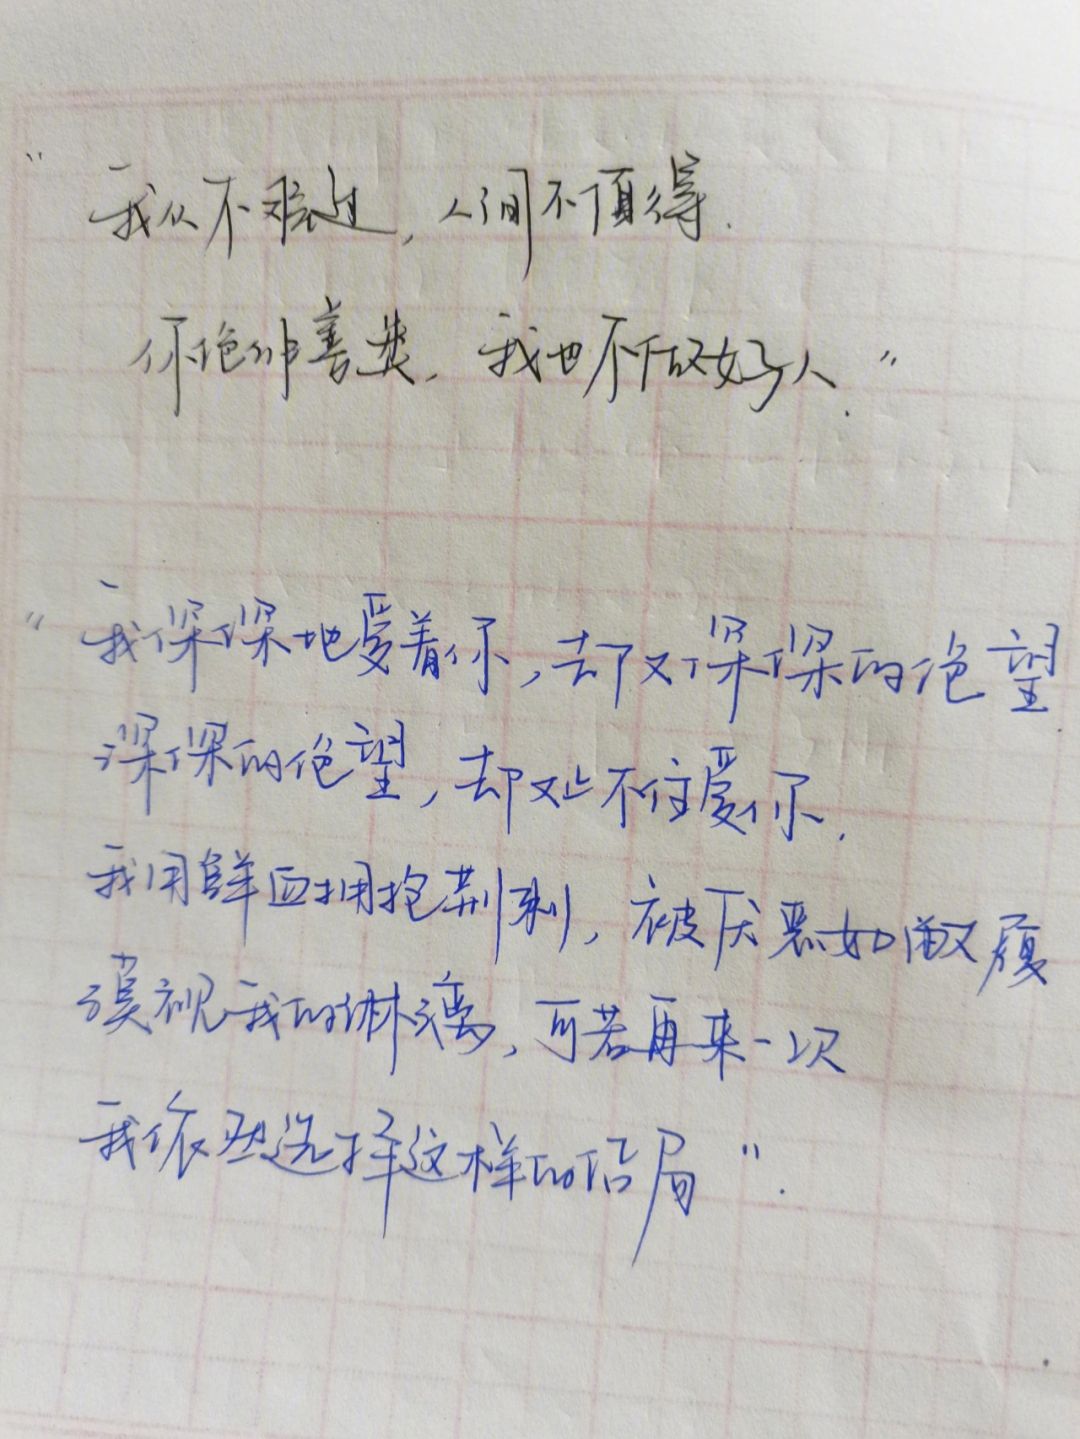 “我从不难过，人间不值得.
你绝非善类，我也不做好人.”
“我深深地爱着你，却又深深的绝望
深深的绝望，却又止不住爱你.
我用鲜血拥抱荆刺，被厌恶如敝履
漠视我的淋漓，可若再来一次
我依然选择这样的结局”.